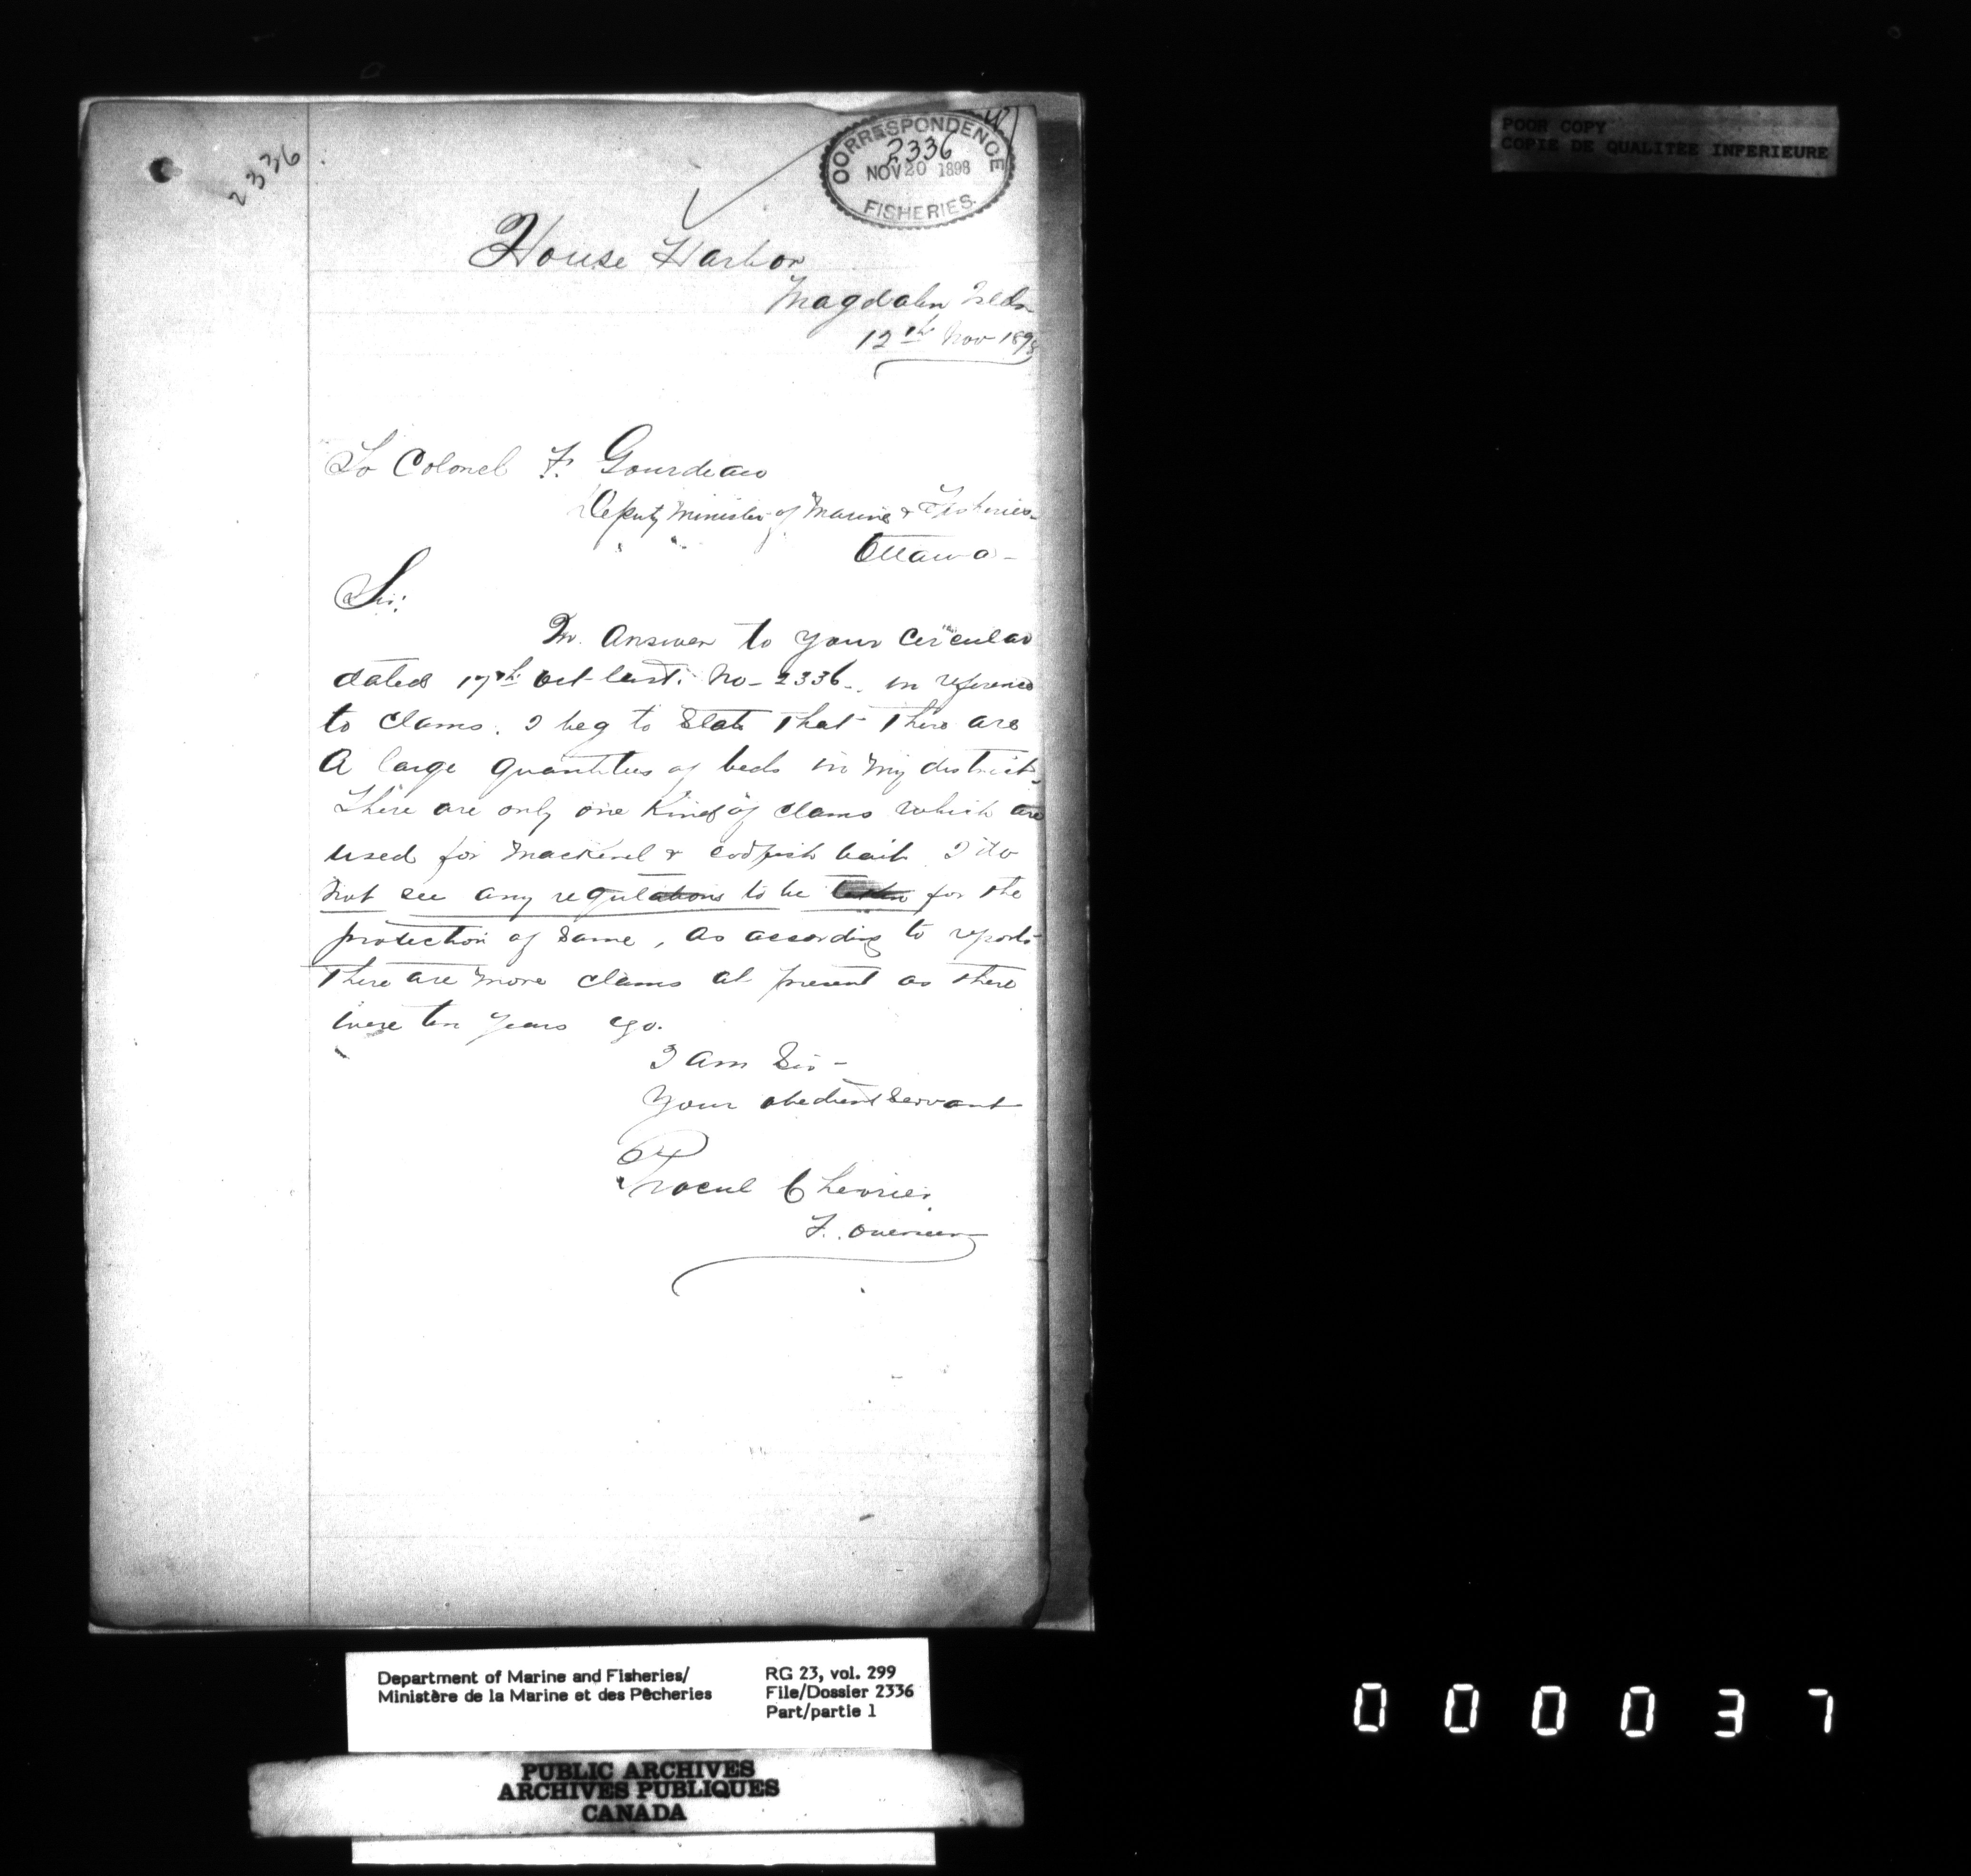 2336
CORRESPONDENCE
2336
NOV 20 1898
FISHERIES.
POOR COPY
COPIE DE QUALITEE INFERIEURE
House Harbor
Magdalen Islds
12th Nov 1898
To Colonel F. Gourdeau
Deputy Minister of Marine & Fisheries
Ottawa -
Sir:
In Answer to your Circular
dated 17th Oct last. No - 2336 - in reference
to clams. I beg to State that there are
A large quantities of beds in my district.
There are only one Kind of clams which are
used for Mackerel & codfish bait I do
not see any regulations to be for the
protection of Same, as according to reports
There are more clams at present as there
were ten years ago.
I am Sir -
Your obedient Servant
Chevrier
F. Overseer
Department of Marine and Fisheries/
Ministère de la Marine et des Pêcheries
RG 23, vol. 299
File/Dossier 2336
Part/partie 1
PUBLIC ARCHIVES
ARCHIVES PUBLIQUES
CANADA
000037